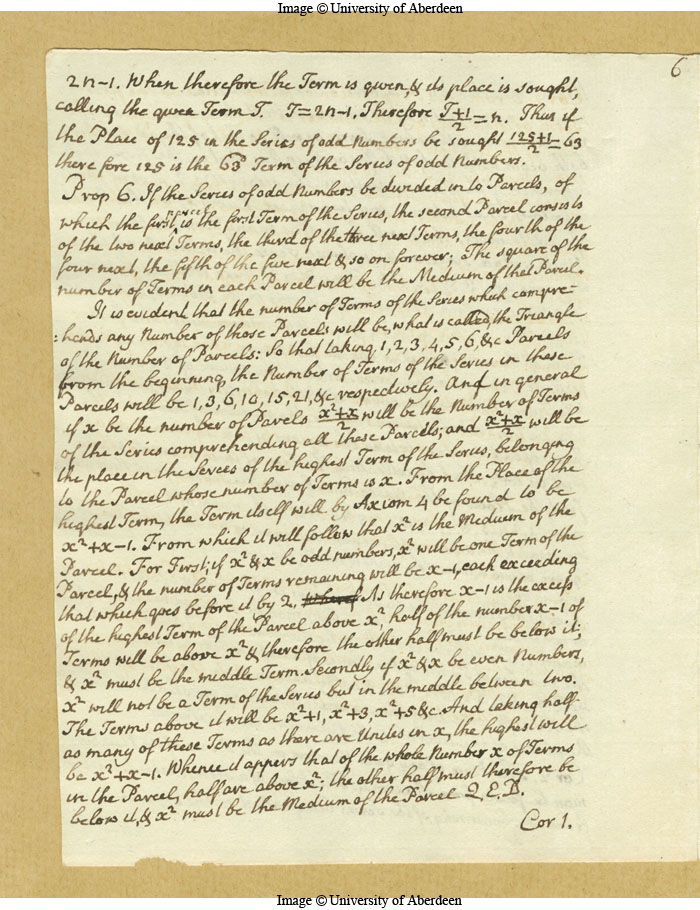 Image © University of Aberdeen
6
2n-1. When therefore the Term is given, & its place is sought,
calling the given Term T. T=2n-1. Therefore (T+1)/2 = n. Thus if
the Place of 125 in the Series of odd Numbers be sought (125+1)/2 = 63
therefore 125 is the 63d Term of the Series of odd Numbers.
Prop 6. If the Series of odd Numbers be divided into Parcels, of
which the first is the first Term of the Series, the second Parcel consists
of the two next Terms, the third of the three next Terms, the fourth of the
four next, the fifth of the five next & so on forever; The square of the
number of Terms in each Parcel will be the Medium of that Parcel.
It is evident that the number of Terms of the Series which compre-
:hends any Number of those Parcels will be, what is called, the Triangle
of the Number of Parcels: So that taking 1, 2, 3, 4, 5, 6, &c Parcels
from the beginning, the Number of Terms of the Series in these
Parcels will be 1, 3, 6, 10, 15, 21, &c respectively. And in general
if x be the number of Parcels (x²+x)/2 will be the Number of Terms
of the Series comprehending all these Parcels; and (x²+x)/2 will be
the place in the Series of the highest Term of the Series, belonging
to the Parcel whose number of Terms is x. From the Place of the
highest Term, the Term itself will by Axiom 4 be found to be
x²+x-1. From which it will follow that x² is the Medium of the
Parcel. For First; if x² & x be odd numbers, x² will be one Term of the
Parcel, & the number of Terms remaining will be x-1, each exceeding
that which goes before it by 2. As therefore x-1 is the excess
of the highest Term of the Parcel above x², half of the number x-1 of
Terms will be above x² & therefore the other half must be below it;
& x² must be the middle Term. Secondly if x² & x be even Numbers,
x² will not be a Term of the Series but in the middle between two.
The Terms above it will be x²+1, x²+3, x²+5 &c. And taking half
as many of these Terms as there are Unites in x, the highest will
be x²+x-1. Whence it appers that of the whole Number x of Terms
in the Parcel, half are above x²; the other half must therefore be
below it, & x² must be the Medium of the Parcel Q.E.D.
Cor 1.
Image © University of Aberdeen